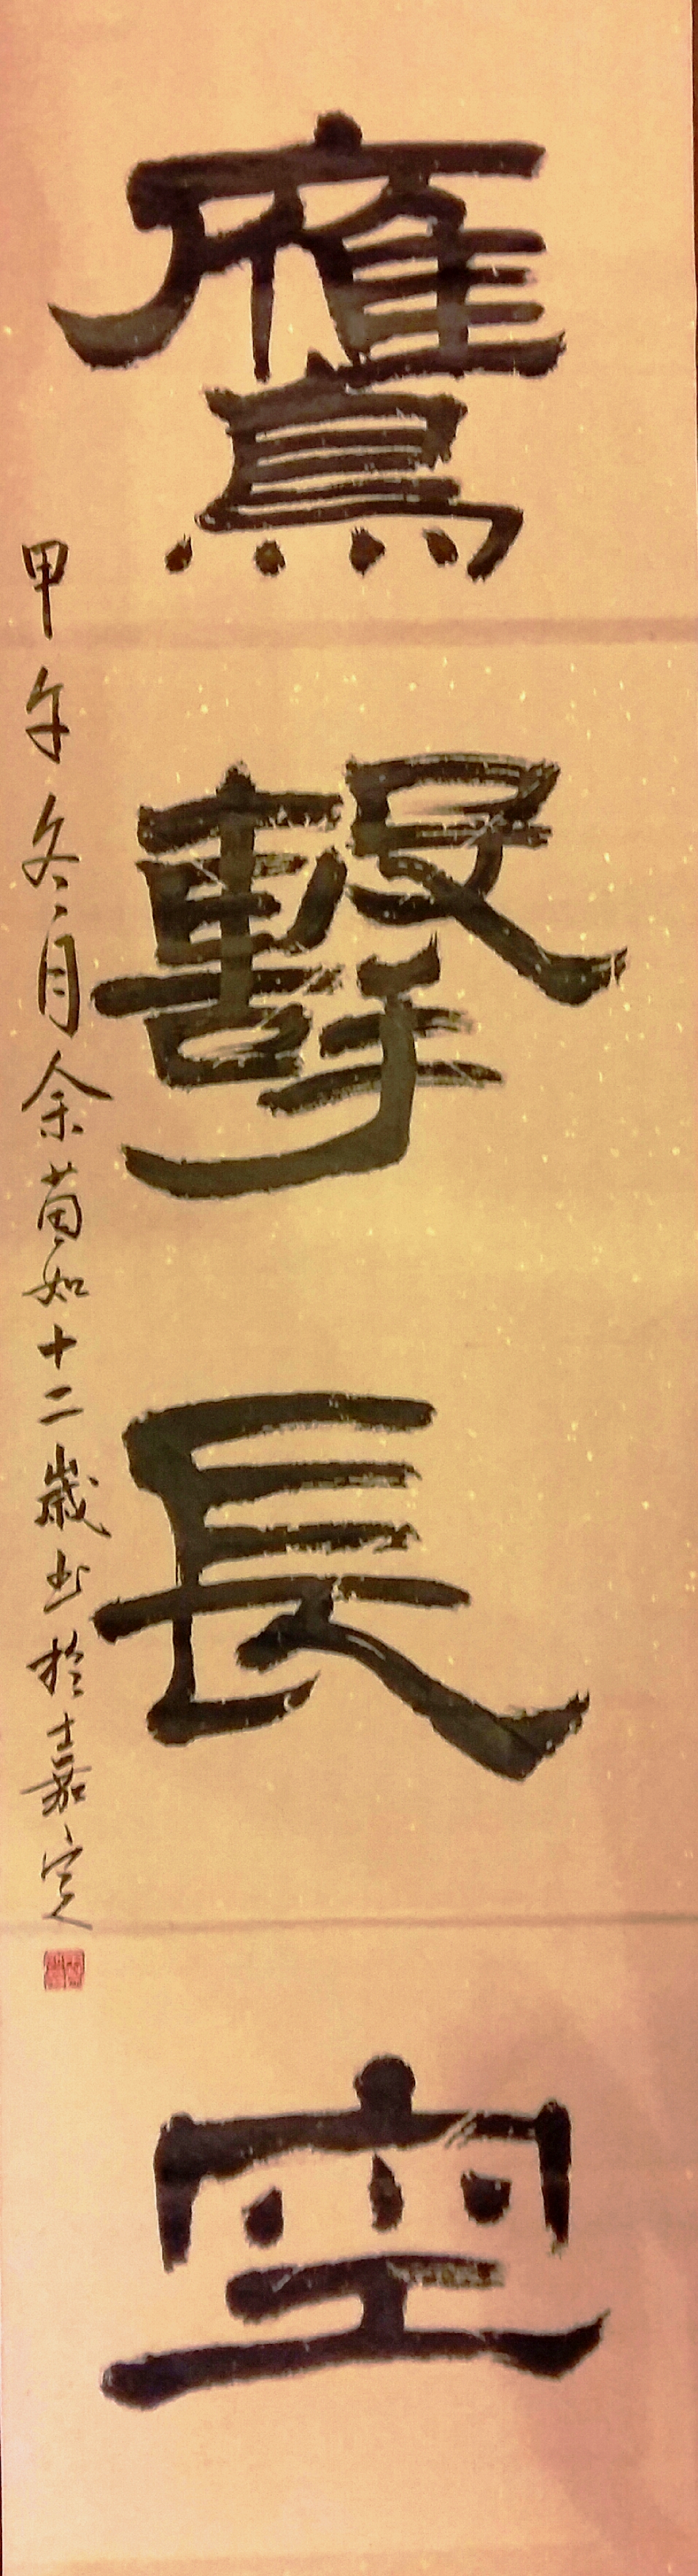 鷹擊長空
甲午冬月余苗如十二歲书於嘉定